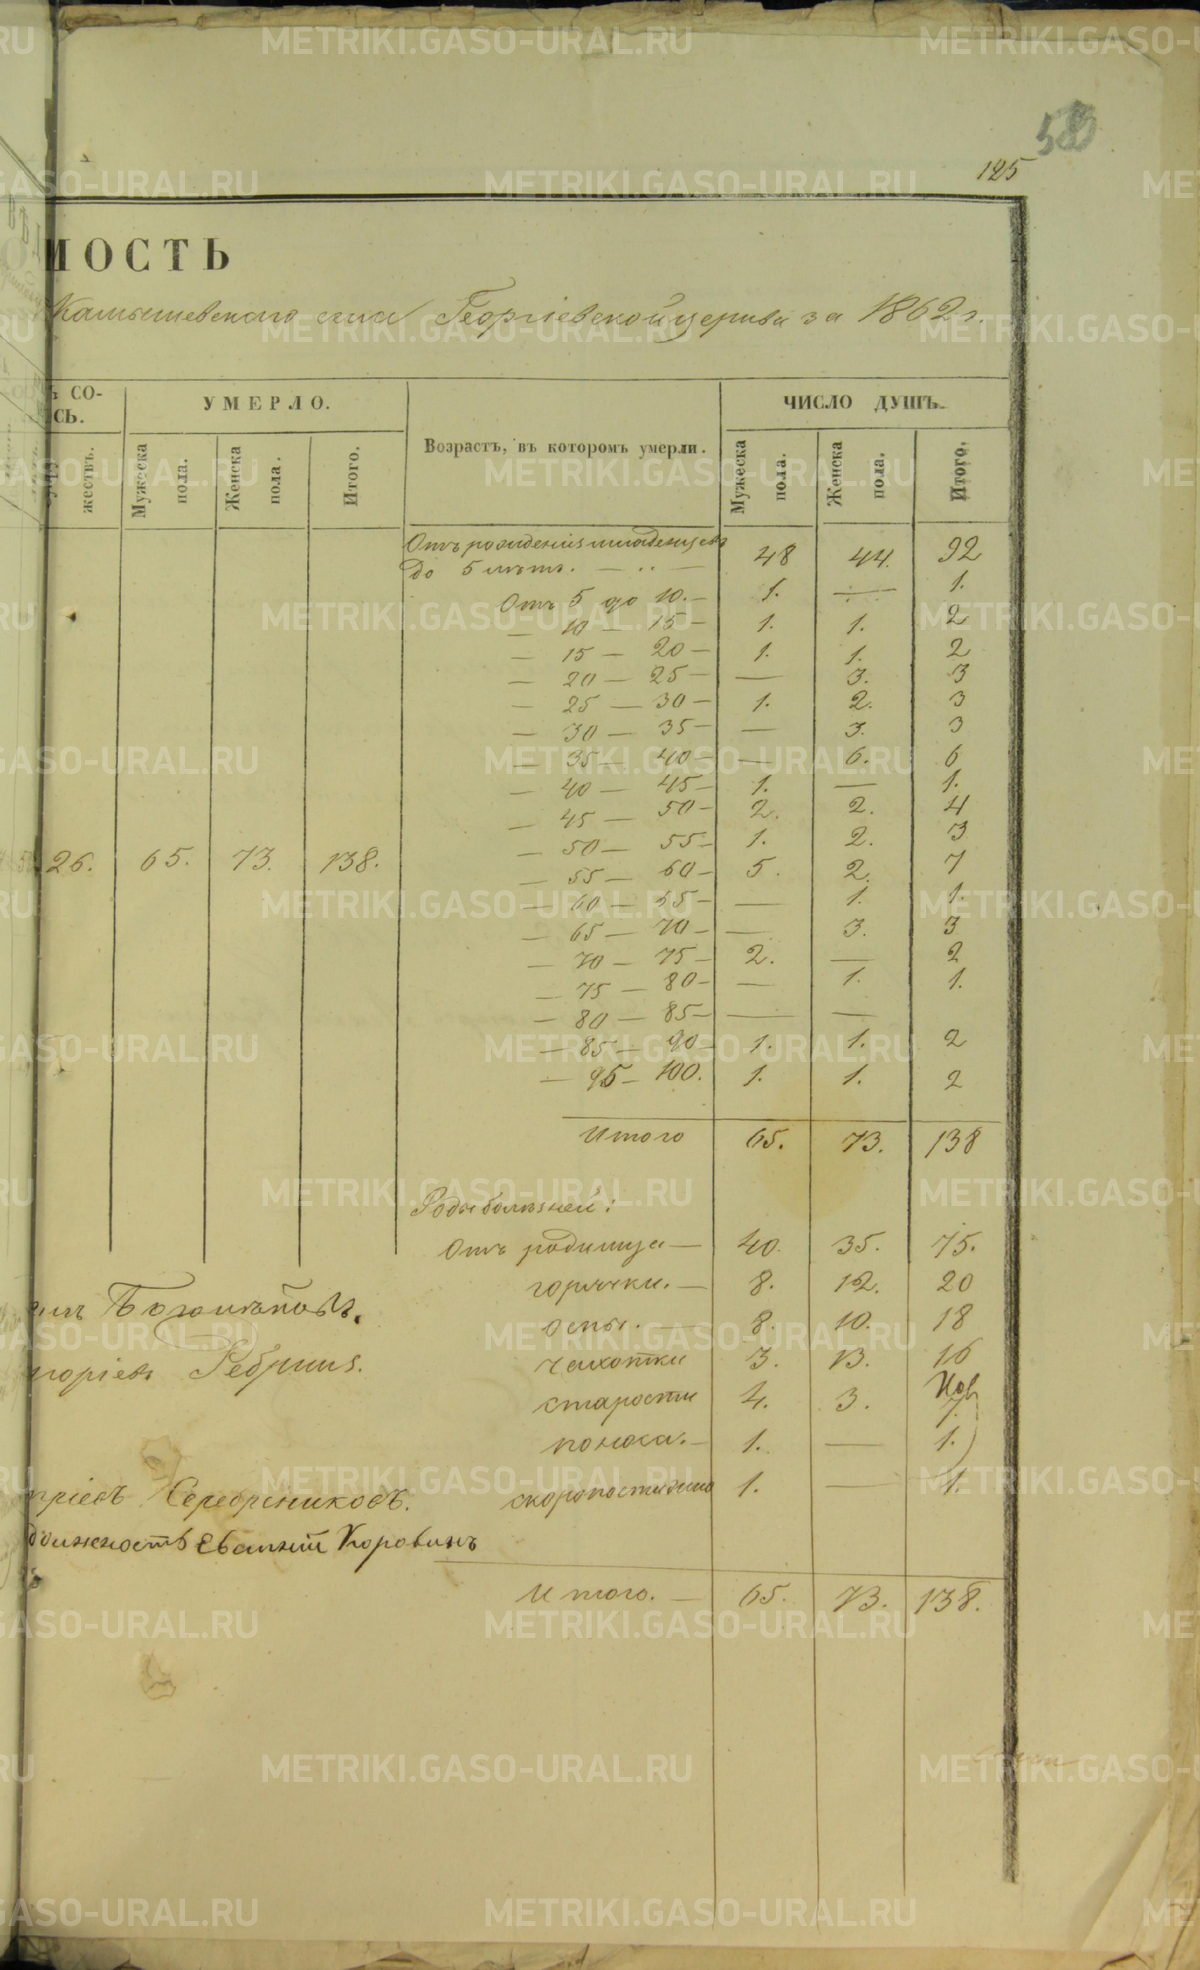 58
125
МОСТЬ
Камышевскаго села Георгіевской церкви за 1862 г.
Ъ СО-
СЬ.
УМЕРЛО.
Возрастъ, въ которомъ умерли.
ЧИСЛО ДУШЪ.
жествъ.
Мужеска пола.
Женска пола.
Итого.
Мужеска пола.
Женска пола.
Итого.
Отъ рожденія младенцевъ
до 5 лѣтъ. — .. — 48 44. 92
Отъ 5 до 10. — 1. — 1.
— 10 — 15 — 1. 1. 2
— 15 — 20 — 1. 1. 2
— 20 — 25 — — 3. 3
— 25 — 30 — 1. 2. 3
— 30 — 35 — — 3. 3
— 35 — 40 — — 6. 6
— 40 — 45 — 1. — 1.
— 45 — 50 — 2. 2. 4
— 50 — 55 — 1. 2. 3
26. 65. 73. 138.
— 55 — 60 — 5. 2. 7
— 60 — 65 — — 1. 1.
— 65 — 70 — — 3. 3
— 70 — 75 — 2. — 2
— 75 — 80 — — 1. 1.
— 80 — 85 — — —
— 85 — 90 — 1. 1. 2
— 95 — 100. 1. 1. 2
Итого 65. 73. 138
Роды болѣзней:
Отъ родимца — 40. 35. 75.
горячки. — 8. 12. 20
оспы. — 8. 10. 18
чахотки 3. 13. 16
старости 4. 3. 7.
поноса. — 1. — 1.
скоропостижно 1. — 1.
Итого. — 65. 73. 138.
Серебрениковъ.
должность Евсѣній Коровинъ